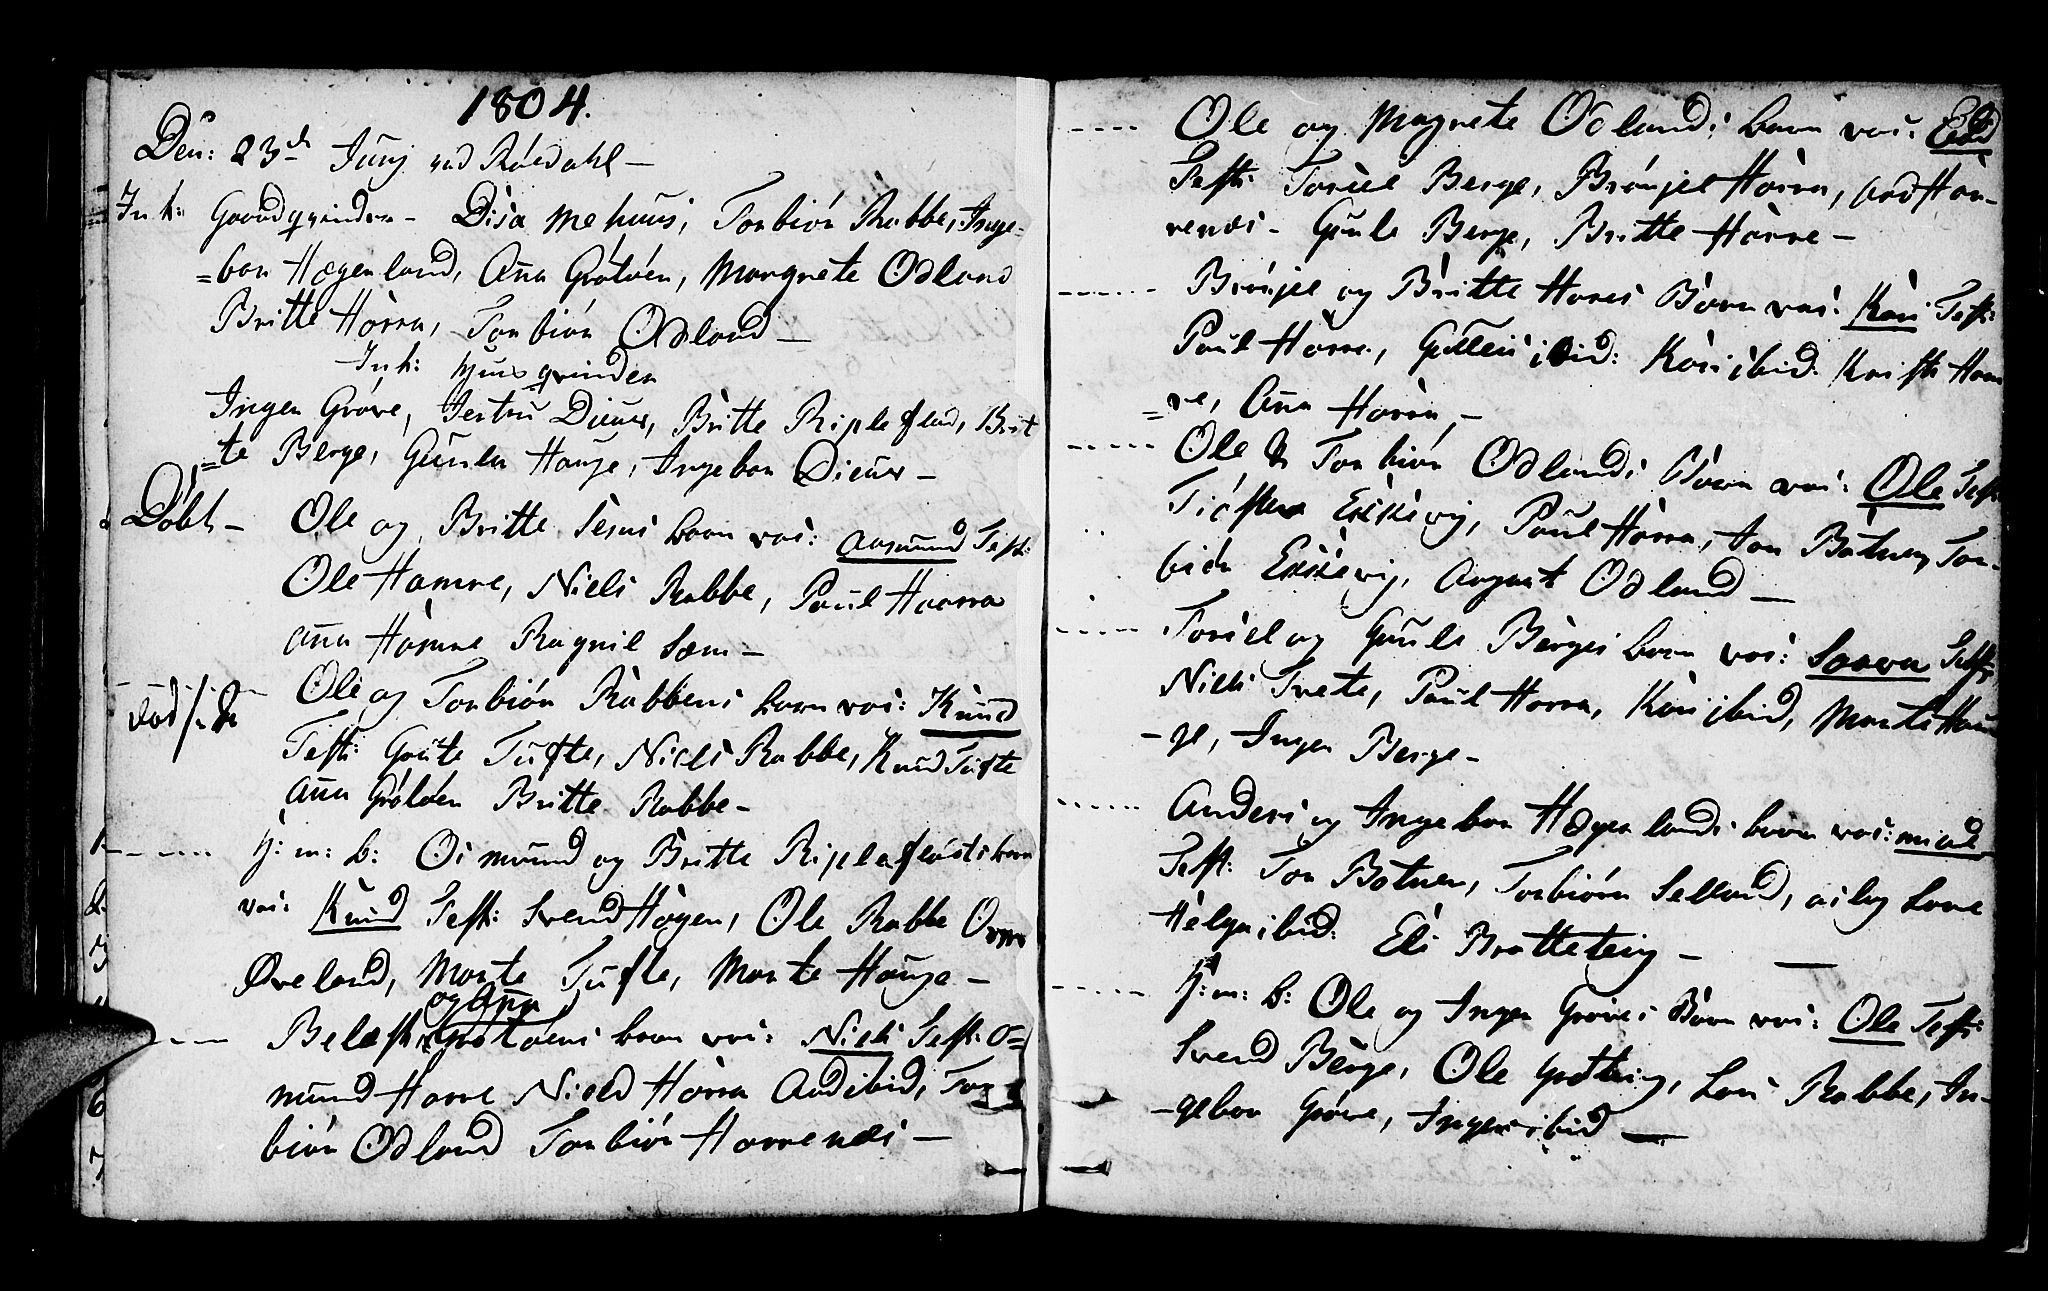 1804.
Den: 23de Junj ved Røedahl —
Int: Gaardqvinder — Disa Mehuus, Torbiør Rabbe, Inge-
=bor Hægerland, Aña Grøtøen, Margrete Odland
Britte Horra, Torbiør Odland —
Int: huus qvinder
Inger Grøve, Jertru Dieuus, Britte Ripleflod, Brit
=te Berge, Gunla Hauge, Ingebor Dieuus —
Døbt — Ole og Britte barn var: Aasmund Test:
Ole Hamre, Niels Rabbe, Poul Haarra
Aña Hamre Ragnil Sæm —
Ole og Torbiør Rabbens barn var: Knud
Test: Goute Tufte, Niels Rabbe, Knud Tufte
Aña Grøtøen Britte Rabbe —
1 h: m: b: Osmund og Britte Ripleflods barn
2 var: Knud Test: Svend Høgen, Ole Rabbe Orm
3 Øveland, Marte Tufte, Marte Hauge —
og Aña
Belest Grøtøens barn var: Niels Test: O=
6 mund Horre Niels Horra Aud ibid, Tor
7 biør Odland Torbiør Horrenæs —
Ole og Magrete Odlands barn var:
Test: Toriel Berge, Brönjel Horra, Aad Hor-
renæs — Gunle Berge, Britte Horre —
Brönjel og Britte Hores Barn var: Kari Test:
Poul Horra, Gutteis ibid: Kari ibid. Kristi Horr
=re, Aña Horra, —
Ole & Torbiør Odlands Barn var: Ole Test
Tiøsten Eskevig, Poul Horra, Jon Botnen, Tor-
biør Eskevig, Aagaat Odland —
Toriel og Gunle Berges barn var: Saave Test:
Niels Tvete, Poul Horra, Kari ibid, Marte Hau
-ge, Inger Berge —
Anders og Ingebor Hægerlands barn var:
Test: Jon Botnen, Torbiørn Selland, Aslag Lone
Helga ibid: Eli Bratteteig —
h: m: b: Ole og Inger Grøves Barn var: Ole Test:
Svend Berge, Ole Grotteig, Lars Rabbe, In-
-gebor Grøve, Inger ibid —